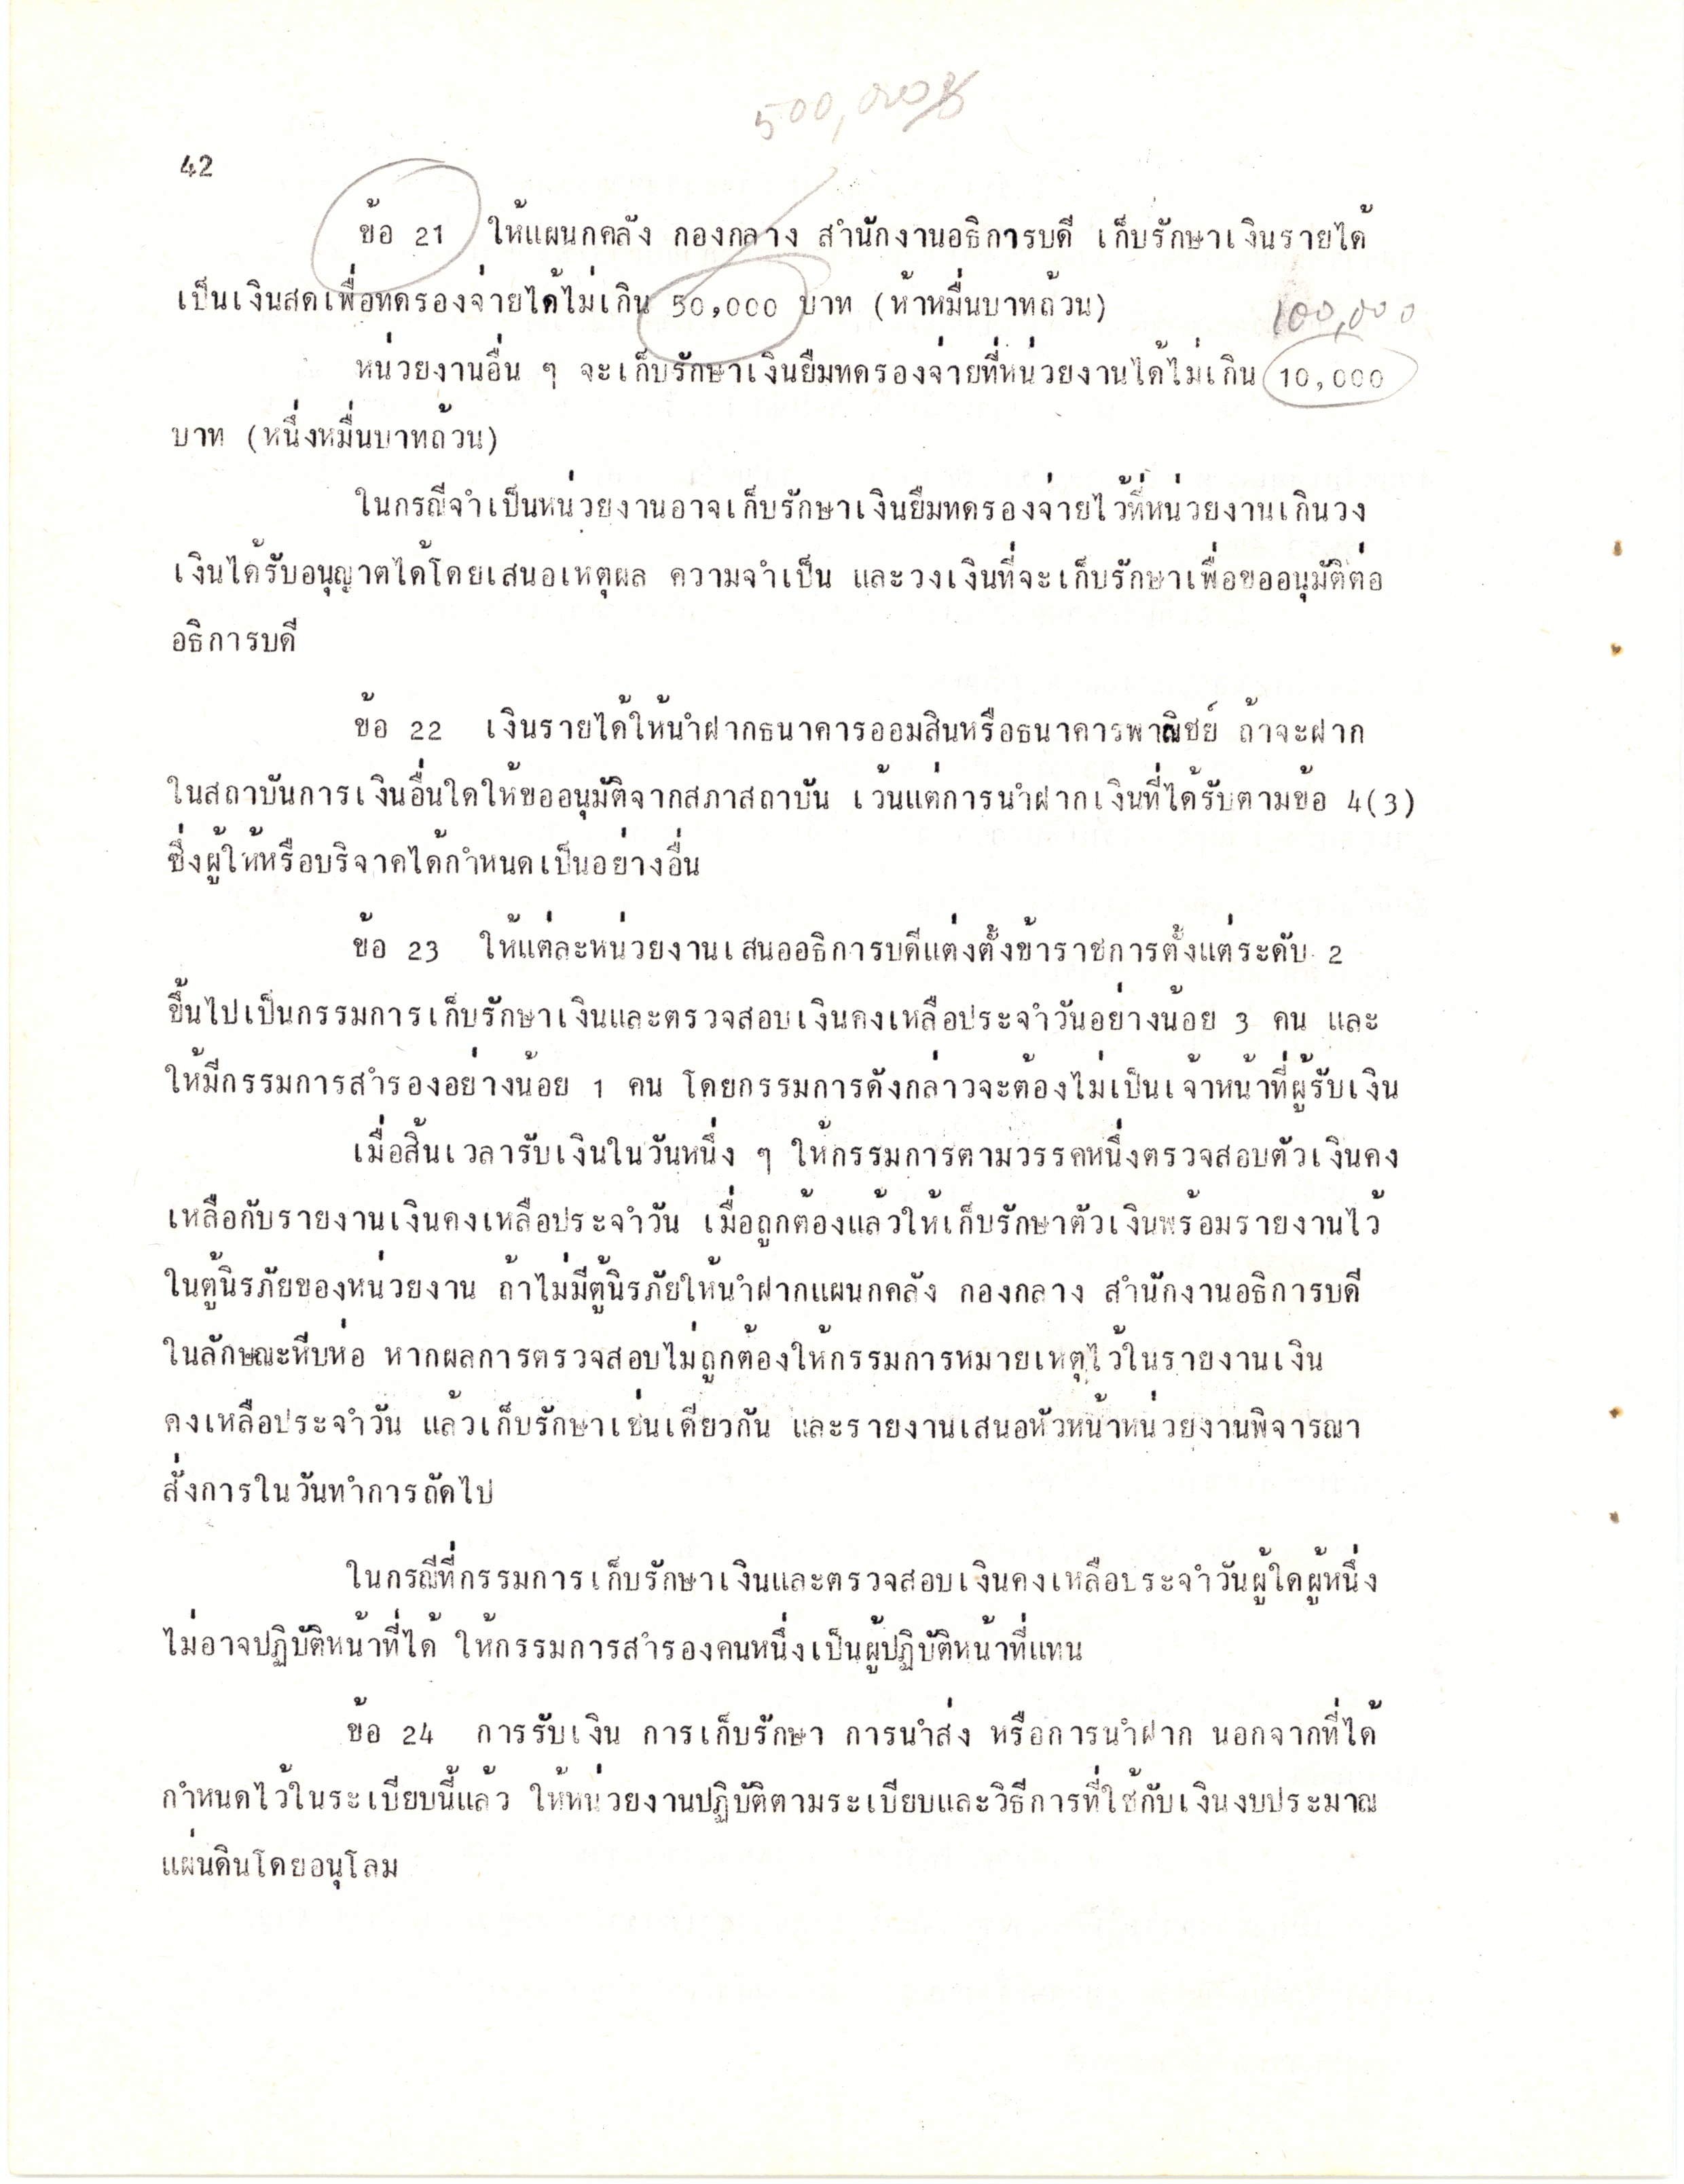 500,000
42
ข้อ 21 ให้แผนกคลัง กองกลาง สำนักงานอธิการบดี เก็บรักษาเงินรายได้
เป็นเงินสดเพื่อทดรองจ่ายได้ไม่เกิน 50,000 บาท (ห้าหมื่นบาทถ้วน)
100,000
หน่วยงานอื่น ๆ จะเก็บรักษาเงินยืมทดรองจ่ายที่หน่วยงานได้ไม่เกิน 10,000
บาท (หนึ่งหมื่นบาทถ้วน)
ในกรณีจำเป็นหน่วยงานอาจเก็บรักษาเงินยืมทดรองจ่ายไว้ที่หน่วยงานเกินวง
เงินได้รับอนุญาตได้โดยเสนอเหตุผล ความจำเป็น และวงเงินที่จะเก็บรักษาเพื่อขออนุมัติต่อ
อธิการบดี
ข้อ 22 เงินรายได้ให้นำฝากธนาคารออมสินหรือธนาคารพาณิชย์ ถ้าจะฝาก
ในสถาบันการเงินอื่นใดให้ขออนุมัติจากสภาสถาบัน เว้นแต่การนำฝากเงินที่ได้รับตามข้อ 4(3)
ซึ่งผู้ให้หรือบริจาคได้กำหนดเป็นอย่างอื่น
ข้อ 23 ให้แต่ละหน่วยงานเสนออธิการบดีแต่งตั้งข้าราชการตั้งแต่ระดับ 2
ขึ้นไปเป็นกรรมการเก็บรักษาเงินและตรวจสอบเงินคงเหลือประจำวันอย่างน้อย 3 คน และ
ให้มีกรรมการสำรองอย่างน้อย 1 คน โดยกรรมการดังกล่าวจะต้องไม่เป็นเจ้าหน้าที่ผู้รับเงิน
เมื่อสิ้นเวลารับเงินในวันหนึ่ง ๆ ให้กรรมการตามวรรคหนึ่งตรวจสอบตัวเงินคง
เหลือกับรายงานเงินคงเหลือประจำวัน เมื่อถูกต้องแล้วให้เก็บรักษาตัวเงินพร้อมรายงานไว้
ในตู้นิรภัยของหน่วยงาน ถ้าไม่มีตู้นิรภัยให้นำฝากแผนกคลัง กองกลาง สำนักงานอธิการบดี
ในลักษณะหีบห่อ หากผลการตรวจสอบไม่ถูกต้องให้กรรมการหมายเหตุไว้ในรายงานเงิน
คงเหลือประจำวัน แล้วเก็บรักษาเช่นเดียวกัน และรายงานเสนอหัวหน้าหน่วยงานพิจารณา
สั่งการในวันทำการถัดไป
ในกรณีที่กรรมการเก็บรักษาเงินและตรวจสอบเงินคงเหลือประจำวันผู้ใดผู้หนึ่ง
ไม่อาจปฏิบัติหน้าที่ได้ ให้กรรมการสำรองคนหนึ่งเป็นผู้ปฏิบัติหน้าที่แทน
ข้อ 24 การรับเงิน การเก็บรักษา การนำส่ง หรือการนำฝาก นอกจากที่ได้
กำหนดไว้ในระเบียบนี้แล้ว ให้หน่วยงานปฏิบัติตามระเบียบและวิธีการที่ใช้กับเงินงบประมาณ
แผ่นดินโดยอนุโลม